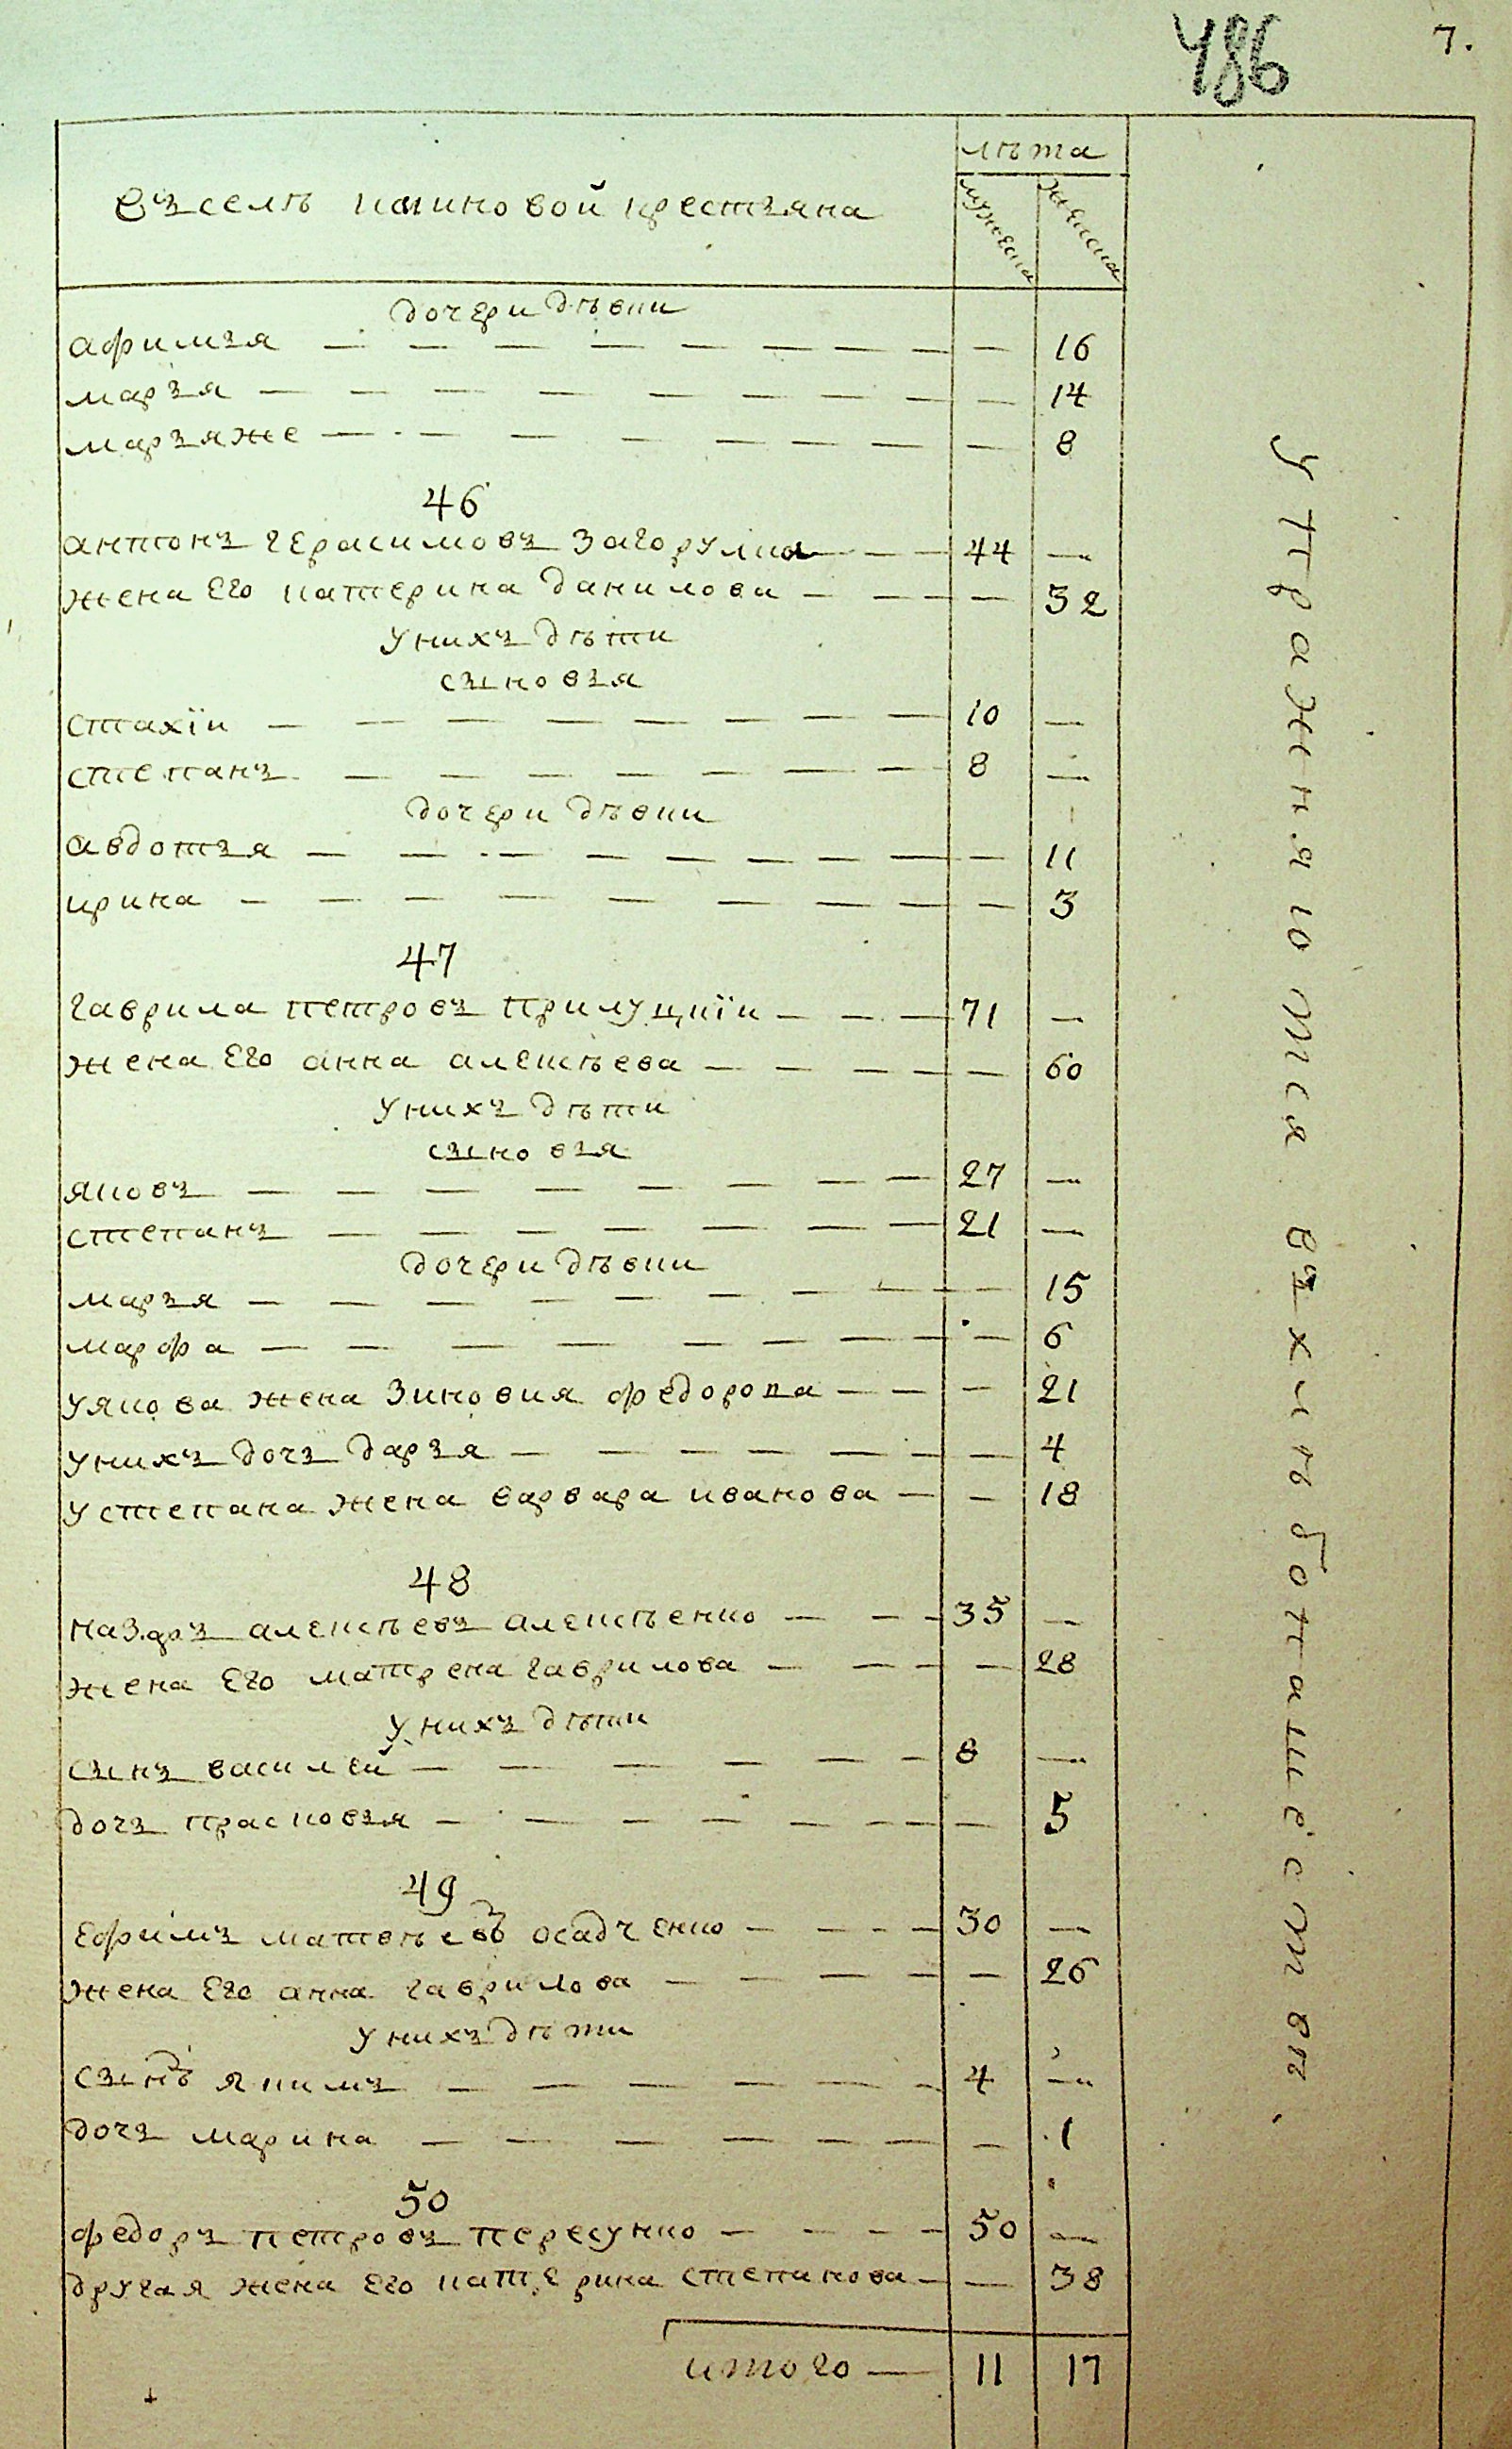 486 7.
въ селѣ каиновой крестьяна
лѣта
мужеска
женска
дочери дѣвки
афимья — 16
марья — 14
марья же — 8
46
антонъ герасимовъ загорулка — 44 —
жена его катерина данилова — 32
у нихъ дѣти
сыновья
стахїи — 10 —
степанъ — 8 —
дочери дѣвки
авдотья — 11
ирина — 3
47
гаврила петровъ прилуцкїи — 71 —
жена его анна алексѣева — 60
у нихъ дѣти
сыновья
яковъ — 27 —
степанъ — 21 —
дочери дѣвки
марья — 15
марфа — 6
у якова жена зиновия федорова — 21
у нихъ дочь дарья — 4
у степана жена варвара иванова — 18
48
назаръ алексѣевъ алексѣенко — 35 —
жена его матрена гаврилова — 28
у нихъ дѣти
сынъ василей — 8 —
дочь прасковья — 5
49
ефимъ матвѣевъ осадченко — 30 —
жена его анна гаврилова — 26
у нихъ дѣти
сынъ якимъ — 4 —
дочь марина — 1
50
федоръ петровъ пересунко — 50 —
другая жена его катерина степанова — 38
итого — 11 17
упражняются въ хлѣбопашествѣ.